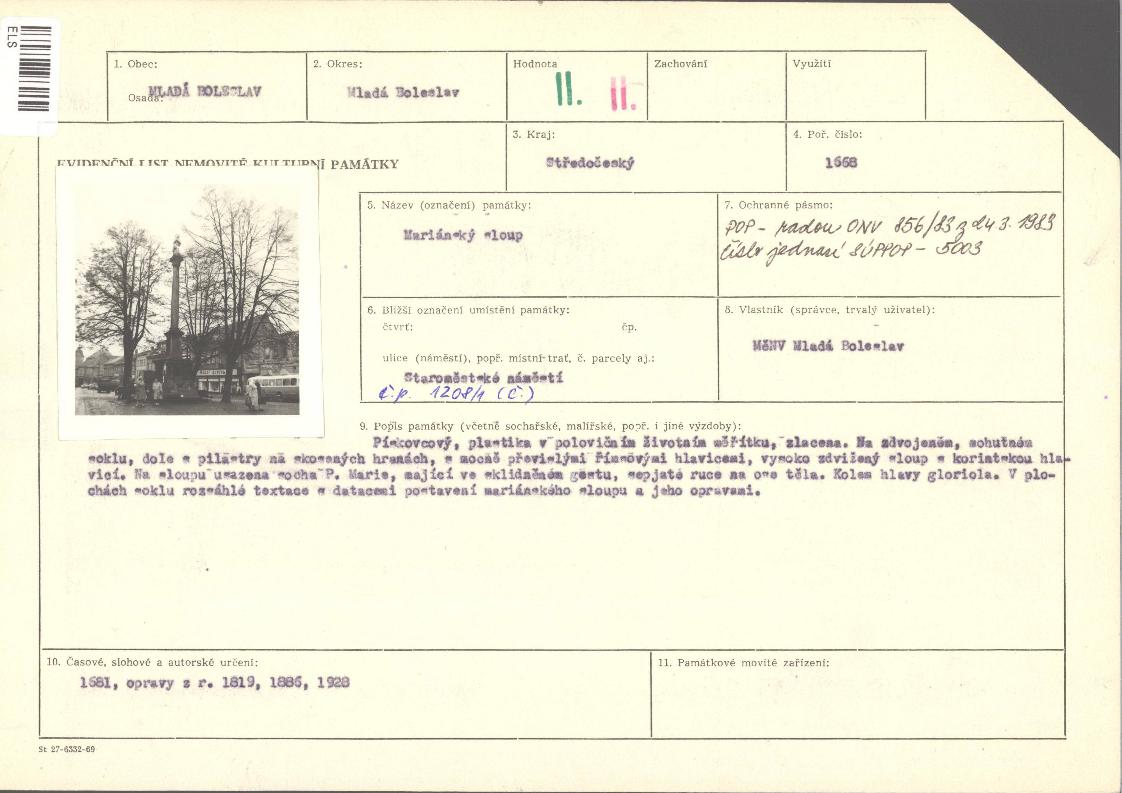 ELS
1. Obec:
Osada:
MLADÁ BOLESLAV
2. Okres:
Mladá Boleslav
Hodnota
II. II.
Zachování
Využití
EVIDENČNÍ LIST NEMOVITÉ KULTURNÍ PAMÁTKY
3. Kraj:
Středočeský
4. Poř. číslo:
1668
5. Název (označení) památky:
Mariánský sloup
7. Ochranné pásmo:
POP - radou ONV 856/83 z d 4.3.1983
číslo jednací SÚPPOP - 5003
6. Bližší označení umístění památky:
čtvrť: čp.
ulice (náměstí), popř. místní trať, č. parcely aj.:
Staroměstské náměstí
č.p. 1208/1 (č.)
8. Vlastník (správce, trvalý uživatel):
MěNV Mladá Boleslav
9. Popis památky (včetně sochařské, malířské, popř. i jiné výzdoby):
Pískovcový, plastika v polovičním životním měřítku, zlacena. Na zdvojeném, mohutném
soklu, dole s pilastry na skosených hranách, s mocně převislými římsovými hlavicemi, vysoko zdvižený sloup s korintskou hla-
vicí. Na sloupu usazena socha P. Marie, mající ve sklidněném gestu, sepjaté ruce na ose těla. Kolem hlavy gloriola. V plo-
chách soklu rozsáhlé textace s datacemi postavení mariánského sloupu a jeho opravami.
10. Časové, slohové a autorské určení:
1681, opravy z r. 1819, 1886, 1928
11. Památkové movité zařízení:
St 27-6332-69